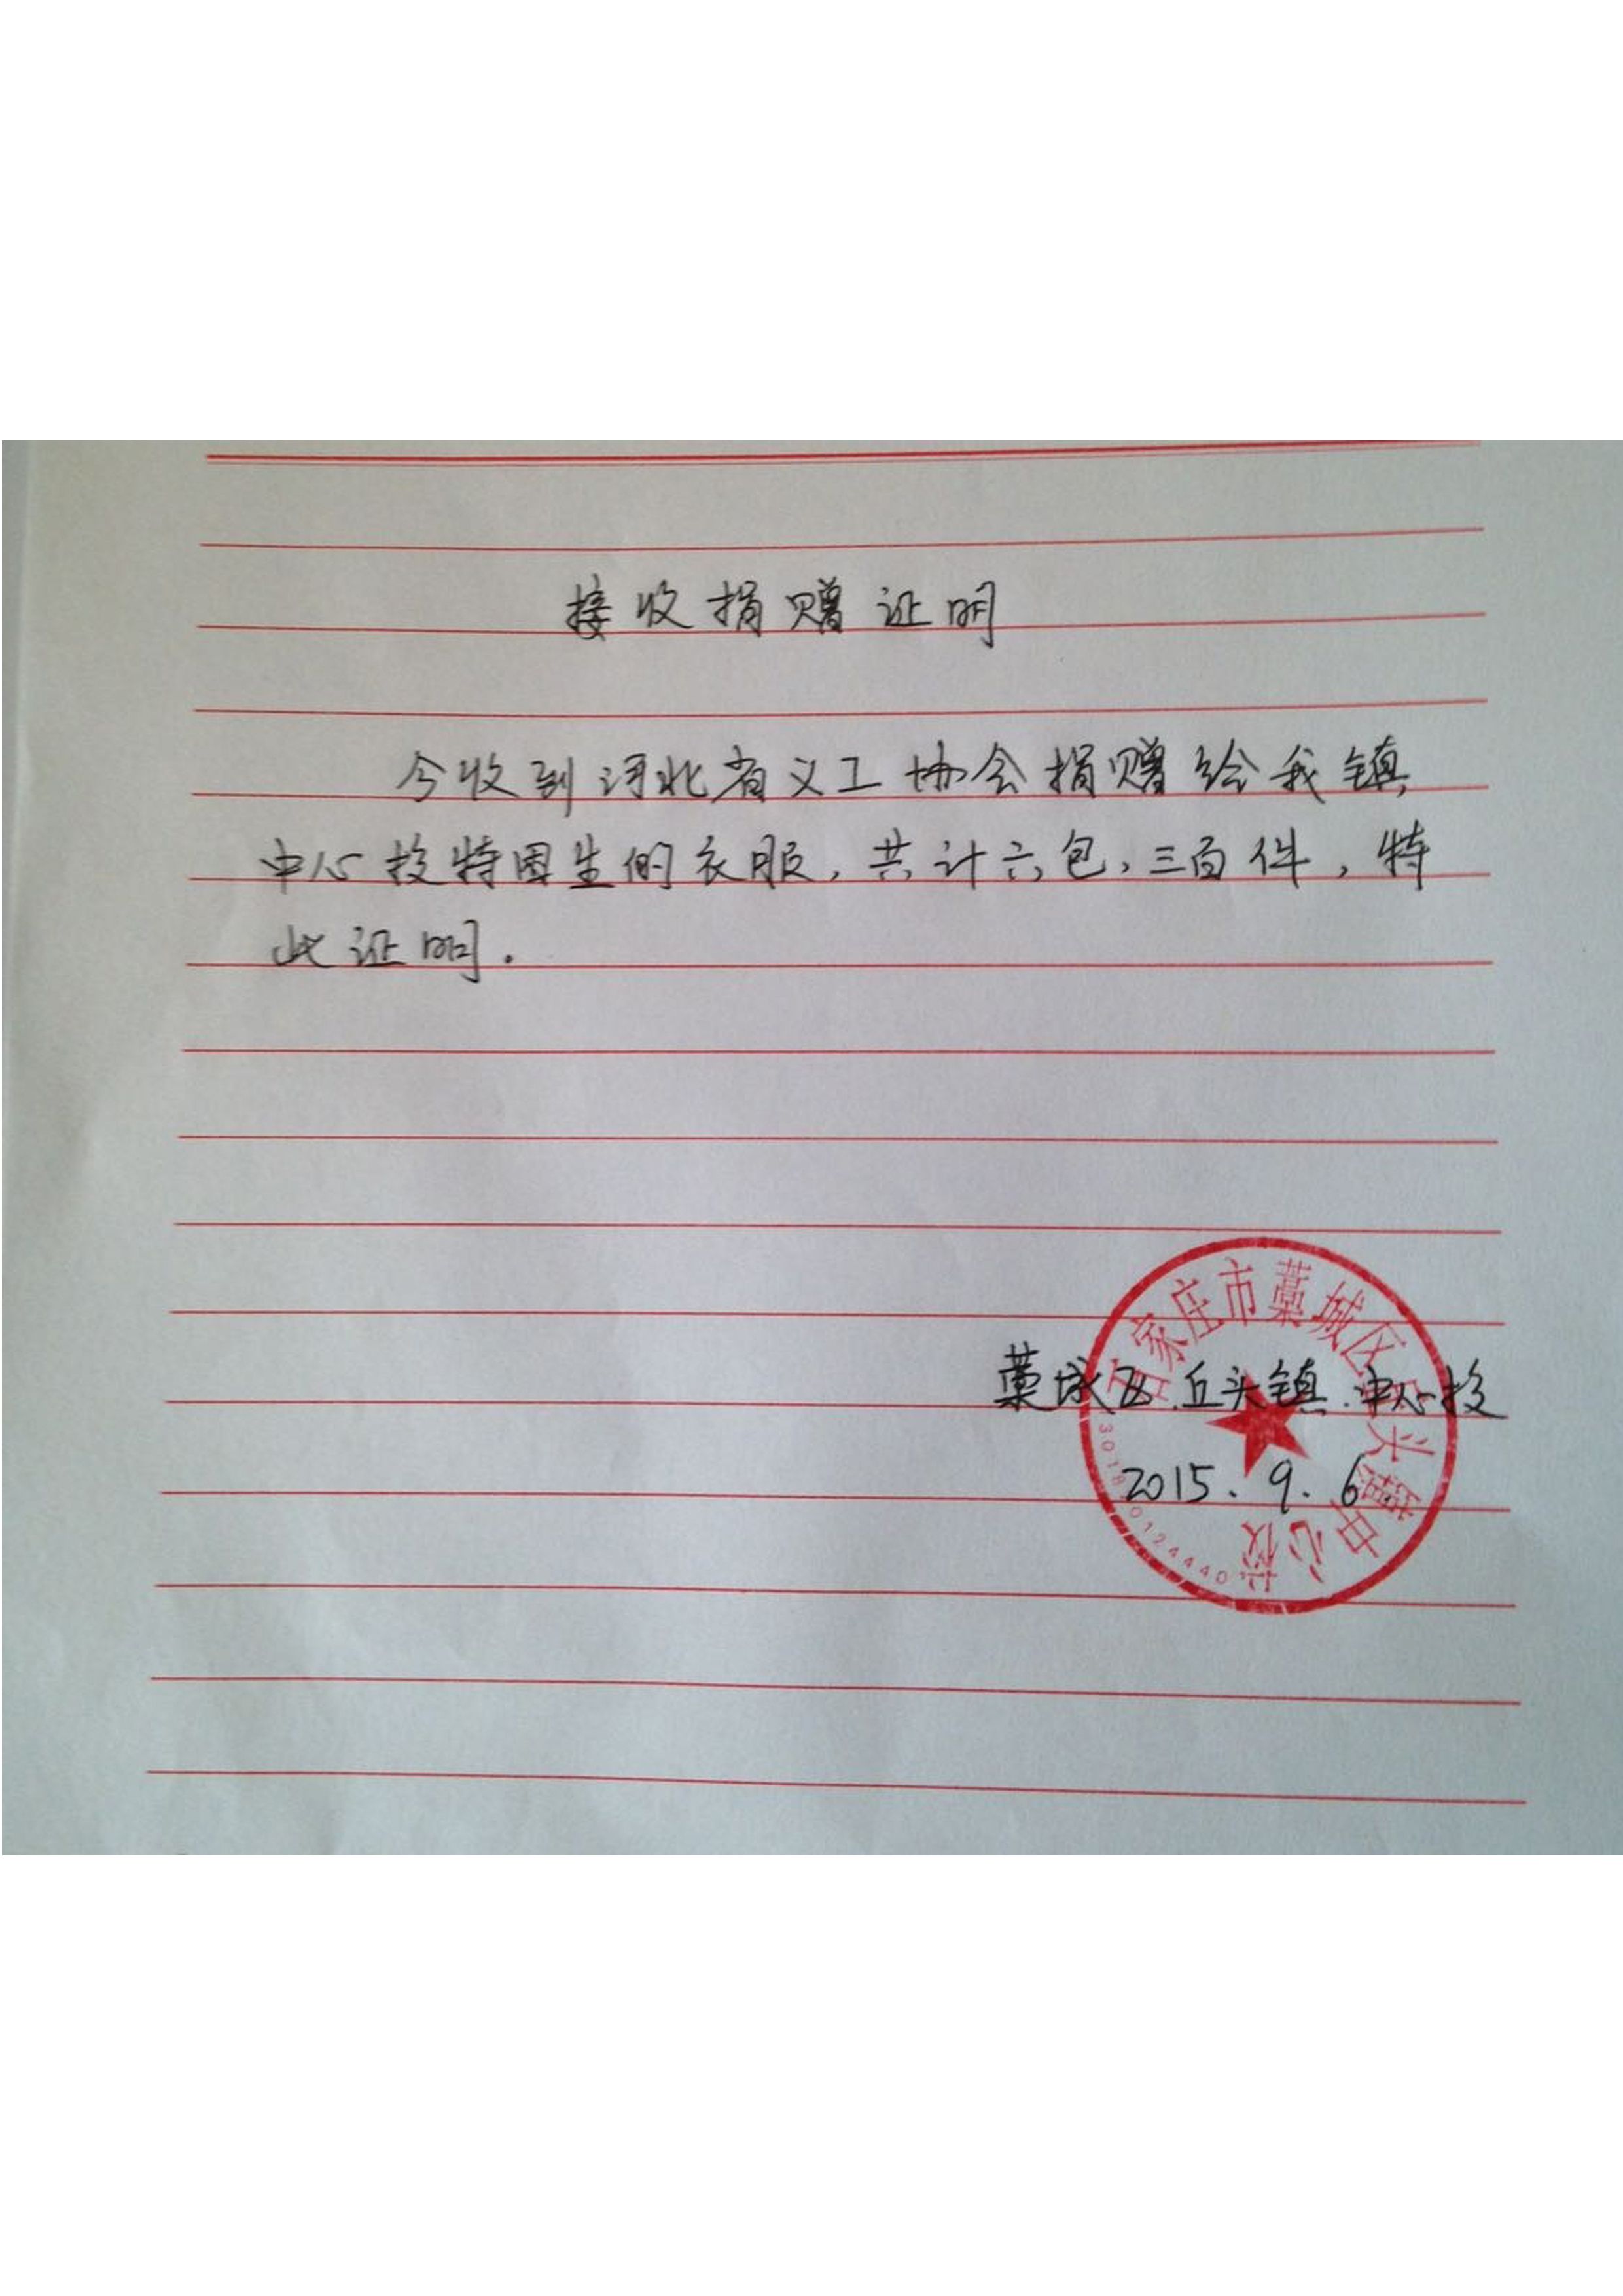 接收捐赠证明
今收到河北省义工协会捐赠给我镇
中心校特困生的衣服,共计六包,三百件,特
此证明.
石家庄市藁城区丘头镇中心校
藁城区丘头镇中心校
2015.9.6